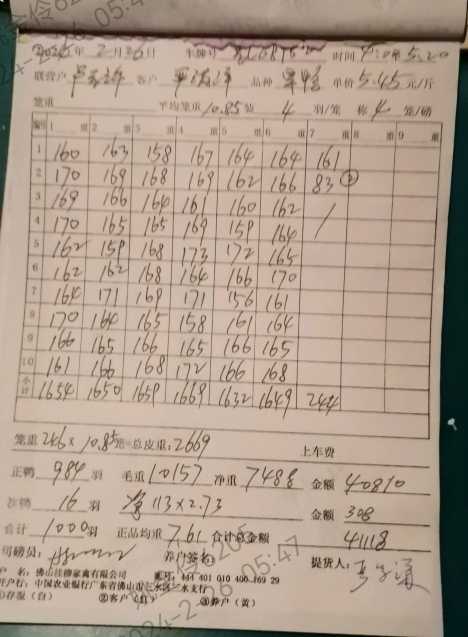 2月26日 车牌号 时间 4:0年5:20
联营户 客户 品种 单价 5.45 元/斤
笼重 平均笼重 10.85 斤 4 羽/笼 称 4 笼/磅
编号 1 重 2 重 3 重 4 重 5 重 6 重 7 重 8 重 9 重
1 160 163 158 167 164 164 161
2 170 169 168 169 162 166 83 ②
3 169 166 164 161 160 162 /
4 170 165 165 169 159 164
5 162 159 168 173 172 165
6 162 162 168 164 166 170
7 164 171 169 171 156 161
8 170 164 165 158 161 164
9 166 165 166 165 166 165
10 161 166 168 172 166 168
小计 1654 1650 1659 1669 1632 1649 244
笼重 246 × 10.85 笼=总皮重:2669 上车费
正鸭 984 羽 毛重 10157 净重 7488 金额 40810
次鸭 16 羽 净 113×2.73 金额 308
合计 1000 羽 正品均重 7.61 合计总金额 41118
司磅员: 养户签名: 提货人:
户 名:佛山佳柳家禽有限公司 账号:444 401 010 400 169 29
开户行:中国农业银行广东省佛山市三水区三水支行
①存根(白) ②客户(红) ③养户(黄)
2024-2-26 05:47